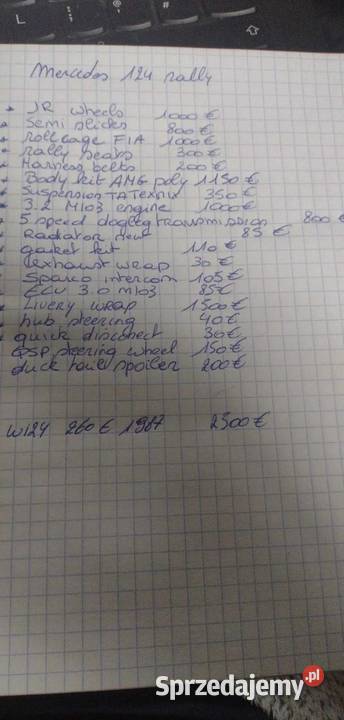 Mercedes 124 rally
JR wheels 1000 €
Semi slicks 800 €
Roll cage FIA 1000 €
rally seats 300 €
Harness belts 200 €
Body kit AMG poly 1150 €
Suspension TA Texnix 350 €
3.2 M103 engine 1000 €
5 speed dogleg transmission 800 €
Radiator new 85 €
gasket kit 110 €
exhaust wrap 30 €
Sparco intercom 105 €
ECU 3.0 M103 85 €
Livery wrap 1500 €
hub steering 40 €
quick disconect 30 €
QSP steering wheel 150 €
duck tail spoiler 200 €
W124 260 E 1987 2300 €
Sprzedajemy.pl